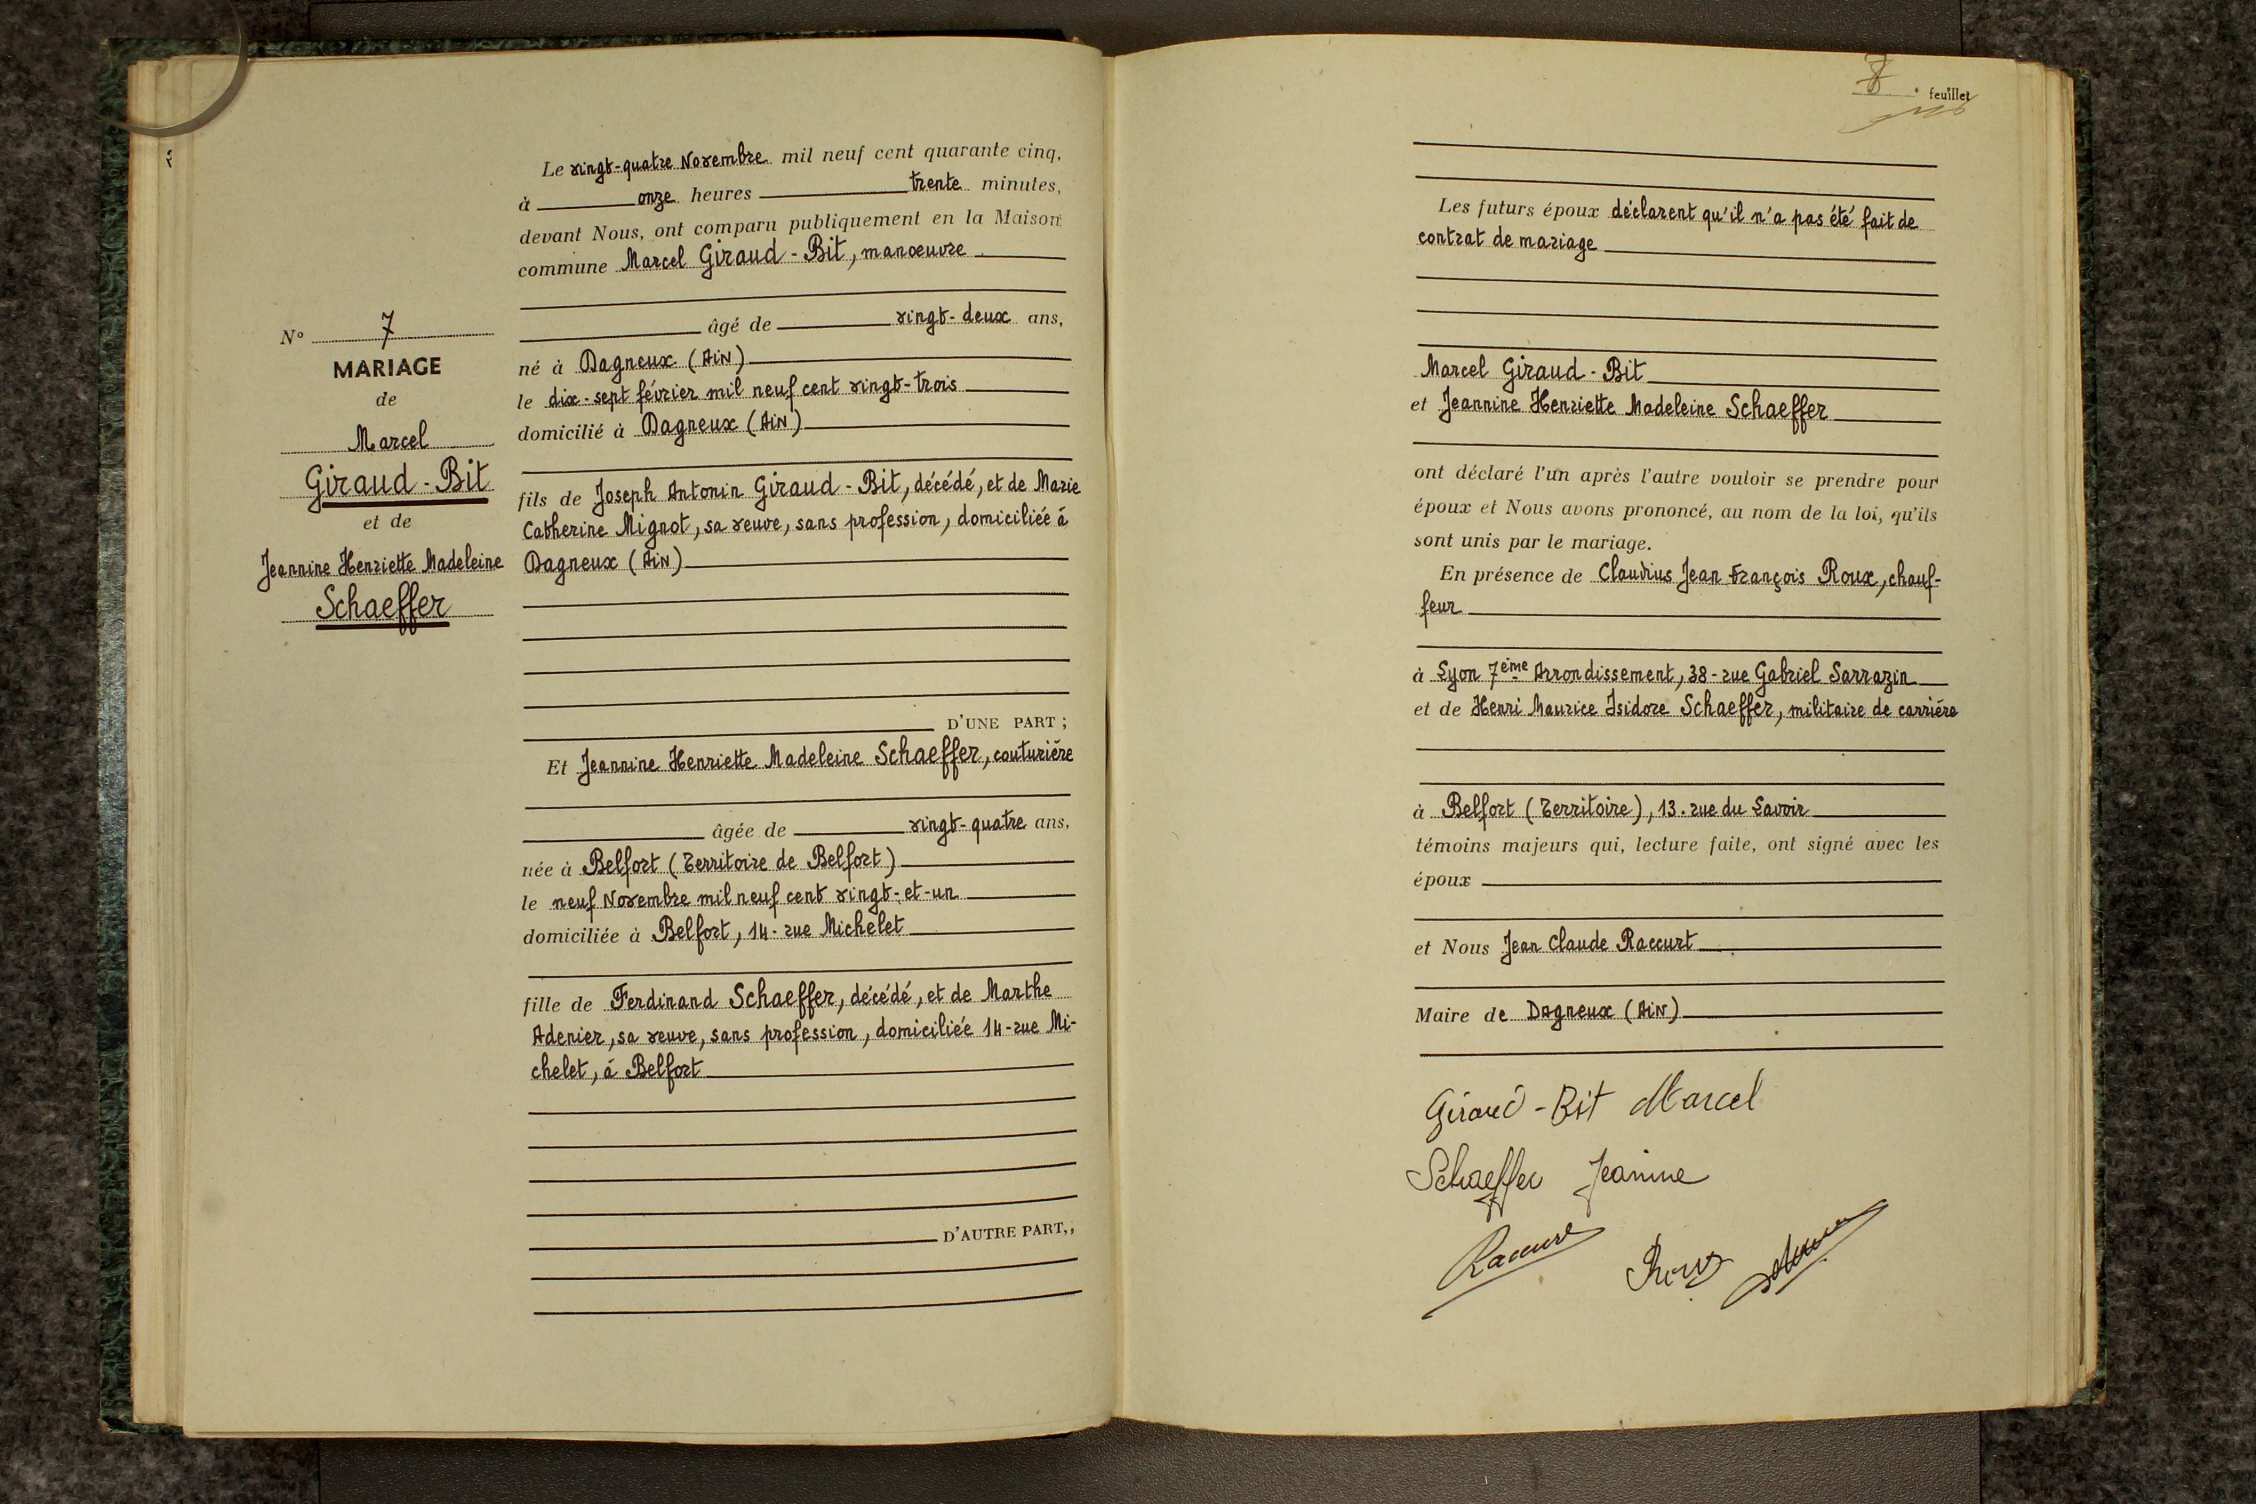 N° 7
MARIAGE
de
Marcel
Giraud-Bit
et de
Jeannine Henriette Madeleine
Schaeffer
Le vingt-quatre Novembre mil neuf cent quarante cinq,
à onze heures trente minutes,
devant Nous, ont comparu publiquement en la Maison
commune Marcel Giraud-Bit, manœuvre
âgé de vingt-deux ans,
né à Dagneux (Ain)
le dix-sept février mil neuf cent vingt-trois
domicilié à Dagneux (Ain)
fils de Joseph Antonin Giraud-Bit, décédé, et de Marie
Catherine Mignot, sa veuve, sans profession, domiciliée à
Dagneux (Ain)
D'UNE PART ;
Et Jeannine Henriette Madeleine Schaeffer, couturière
âgée de vingt-quatre ans,
née à Belfort (Territoire de Belfort)
le neuf Novembre mil neuf cent vingt-et-un
domiciliée à Belfort, 14-rue Michelet
fille de Ferdinand Schaeffer, décédé, et de Marthe
Adenier, sa veuve, sans profession, domiciliée 14-rue Mi-
chelet, à Belfort
D'AUTRE PART,,
8 e feuillet
Les futurs époux déclarent qu'il n'a pas été fait de
contrat de mariage
Marcel Giraud-Bit
et Jeannine Henriette Madeleine Schaeffer
ont déclaré l'un après l'autre vouloir se prendre pour
époux et Nous avons prononcé, au nom de la loi, qu'ils
sont unis par le mariage.
En présence de Claudius Jean François Roux, chauf-
feur
à Lyon 7ème Arrondissement, 38-rue Gabriel Sarrazin
et de Henri Maurice Isidore Schaeffer, militaire de carrière
à Belfort (Territoire), 13-rue du Savoir
témoins majeurs qui, lecture faite, ont signé avec les
époux
et Nous Jean Claude Raccurt
Maire de Dagneux (Ain)
Giraud-Bit Marcel
Schaeffer Jeanine
Raccurt
Roux